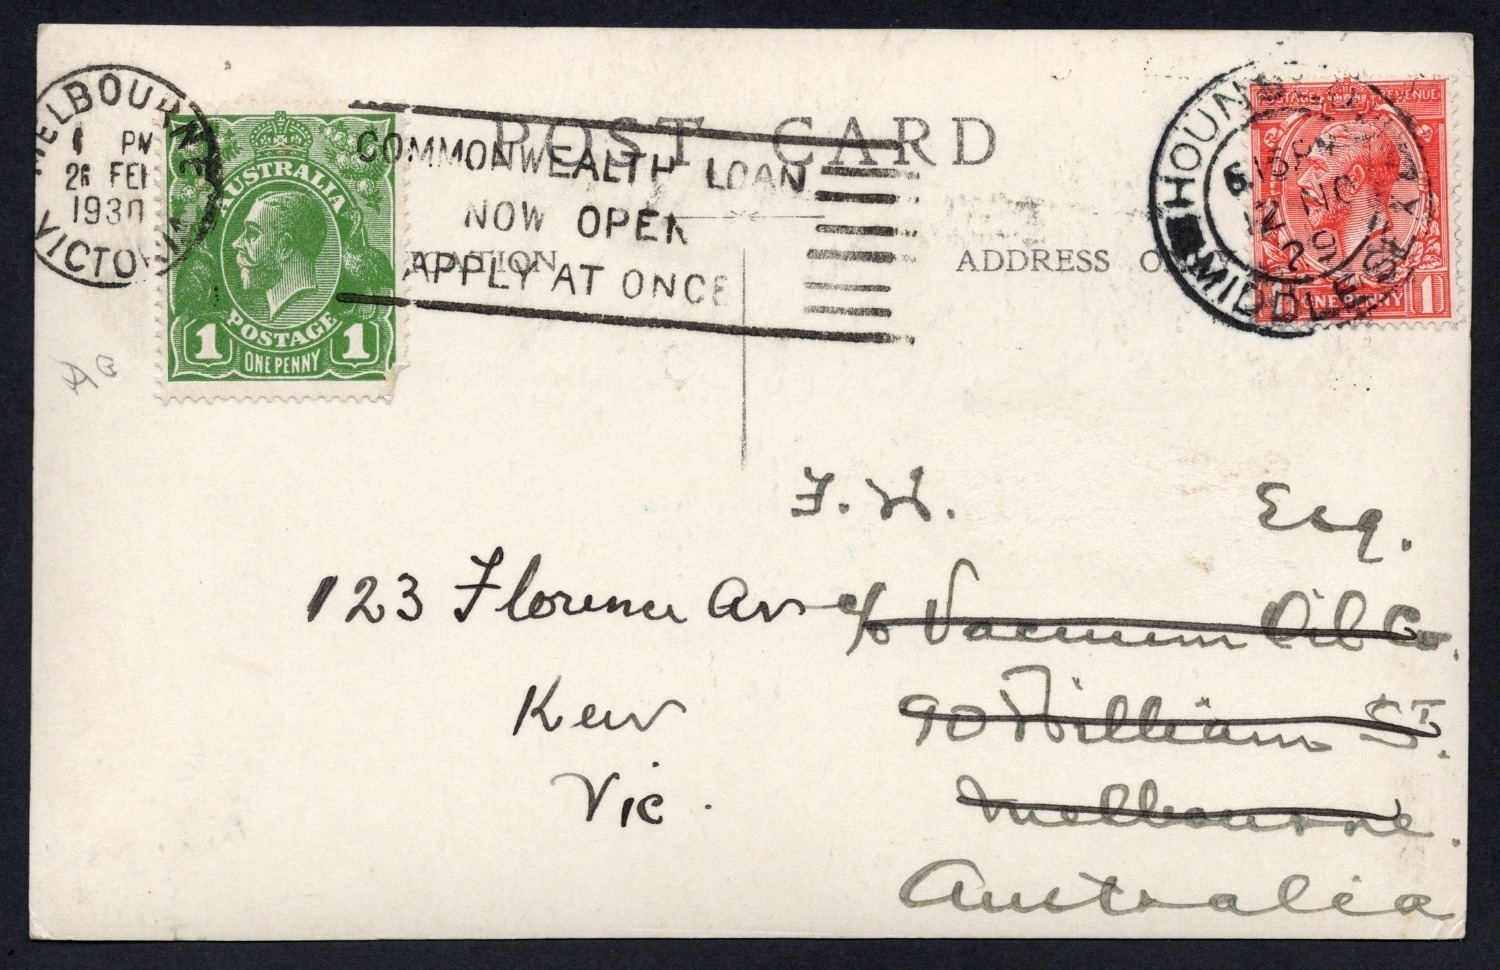 MELBOURNE
1 PM
26 FEB
1930
VICTORIA
AUSTRALIA
POSTAGE
1 ONE PENNY 1
COMMONWEALTH LOAN
NOW OPEN
APPLY AT ONCE
POST CARD
ADDRESS
HOUNSLOW
MIDDLESEX
NO
29
POSTAGE REVENUE
ONE PENNY 1
AB
F. W. Esq.
c/o Vacuum Oil Co.
90 William St.
Melbourne.
Australia
123 Florence Av
Kew
Vic.